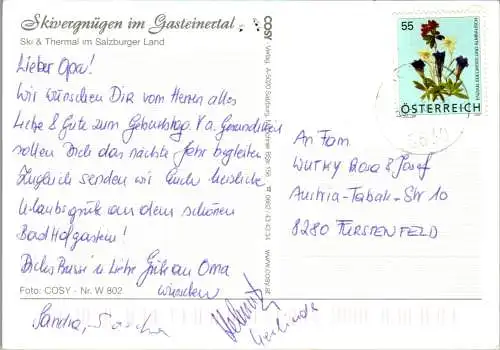 Skivergnügen im Gasteinertal
Ski & Thermal im Salzburger Land
Lieber Opa!
Wir wünschen Dir vom Herzen alles
Liebe & Gute zum Geburtstag. V.a. Gesundheit
sollen Dich das nächste Jahr begleiten
Zugleich senden wir Euch herzliche
Urlaubsgrüße aus dem schönen
Bad Hofgastein!
Dicke Bussi's Liebe Grüße an Oma
wünschen
Foto: COSY - Nr. W 802
Sandra, Sascha
Helmut
Gerlinde
COSY - Verlag, A-5020 Salzburg
www.cosy.at
55
ÖSTERREICH
An Fam.
WUTKY Rosa & Josef
Austria-Tabak-Str 10
8280 FÜRSTENFELD